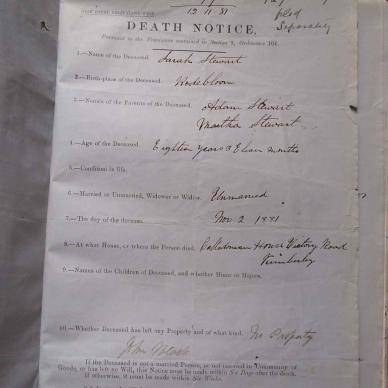 12.11.81
filed
Separately
DEATH NOTICE,
Pursuant to the Provisions contained in Section 9, Ordinance 104.
1.—Name of the Deceased. Sarah Stewart
2.—Birth-place of the Deceased.
3.—Names of the Parents of the Deceased. Adam Stewart
Martha Stewart
4.—Age of the Deceased. Eighteen years & Eleven months
5.—Condition in life.
6.—Married or Unmarried, Widower or Widow. Unmarried
7.—The day of the decease. Nov 2 1881
8.—At what House, or where the Person died. Caledonian House Victory Road
Kimberley
9.—Names of the Children of Deceased, and whether Minor or Majors.
10.—Whether Deceased has left any Property and of what kind. No Property
John
If the Deceased is not a married Person, or not married in Community of
Goods, or has left no Will, this Notice must be made within Six Days after the death.
If otherwise, it must be made within Six Weeks.